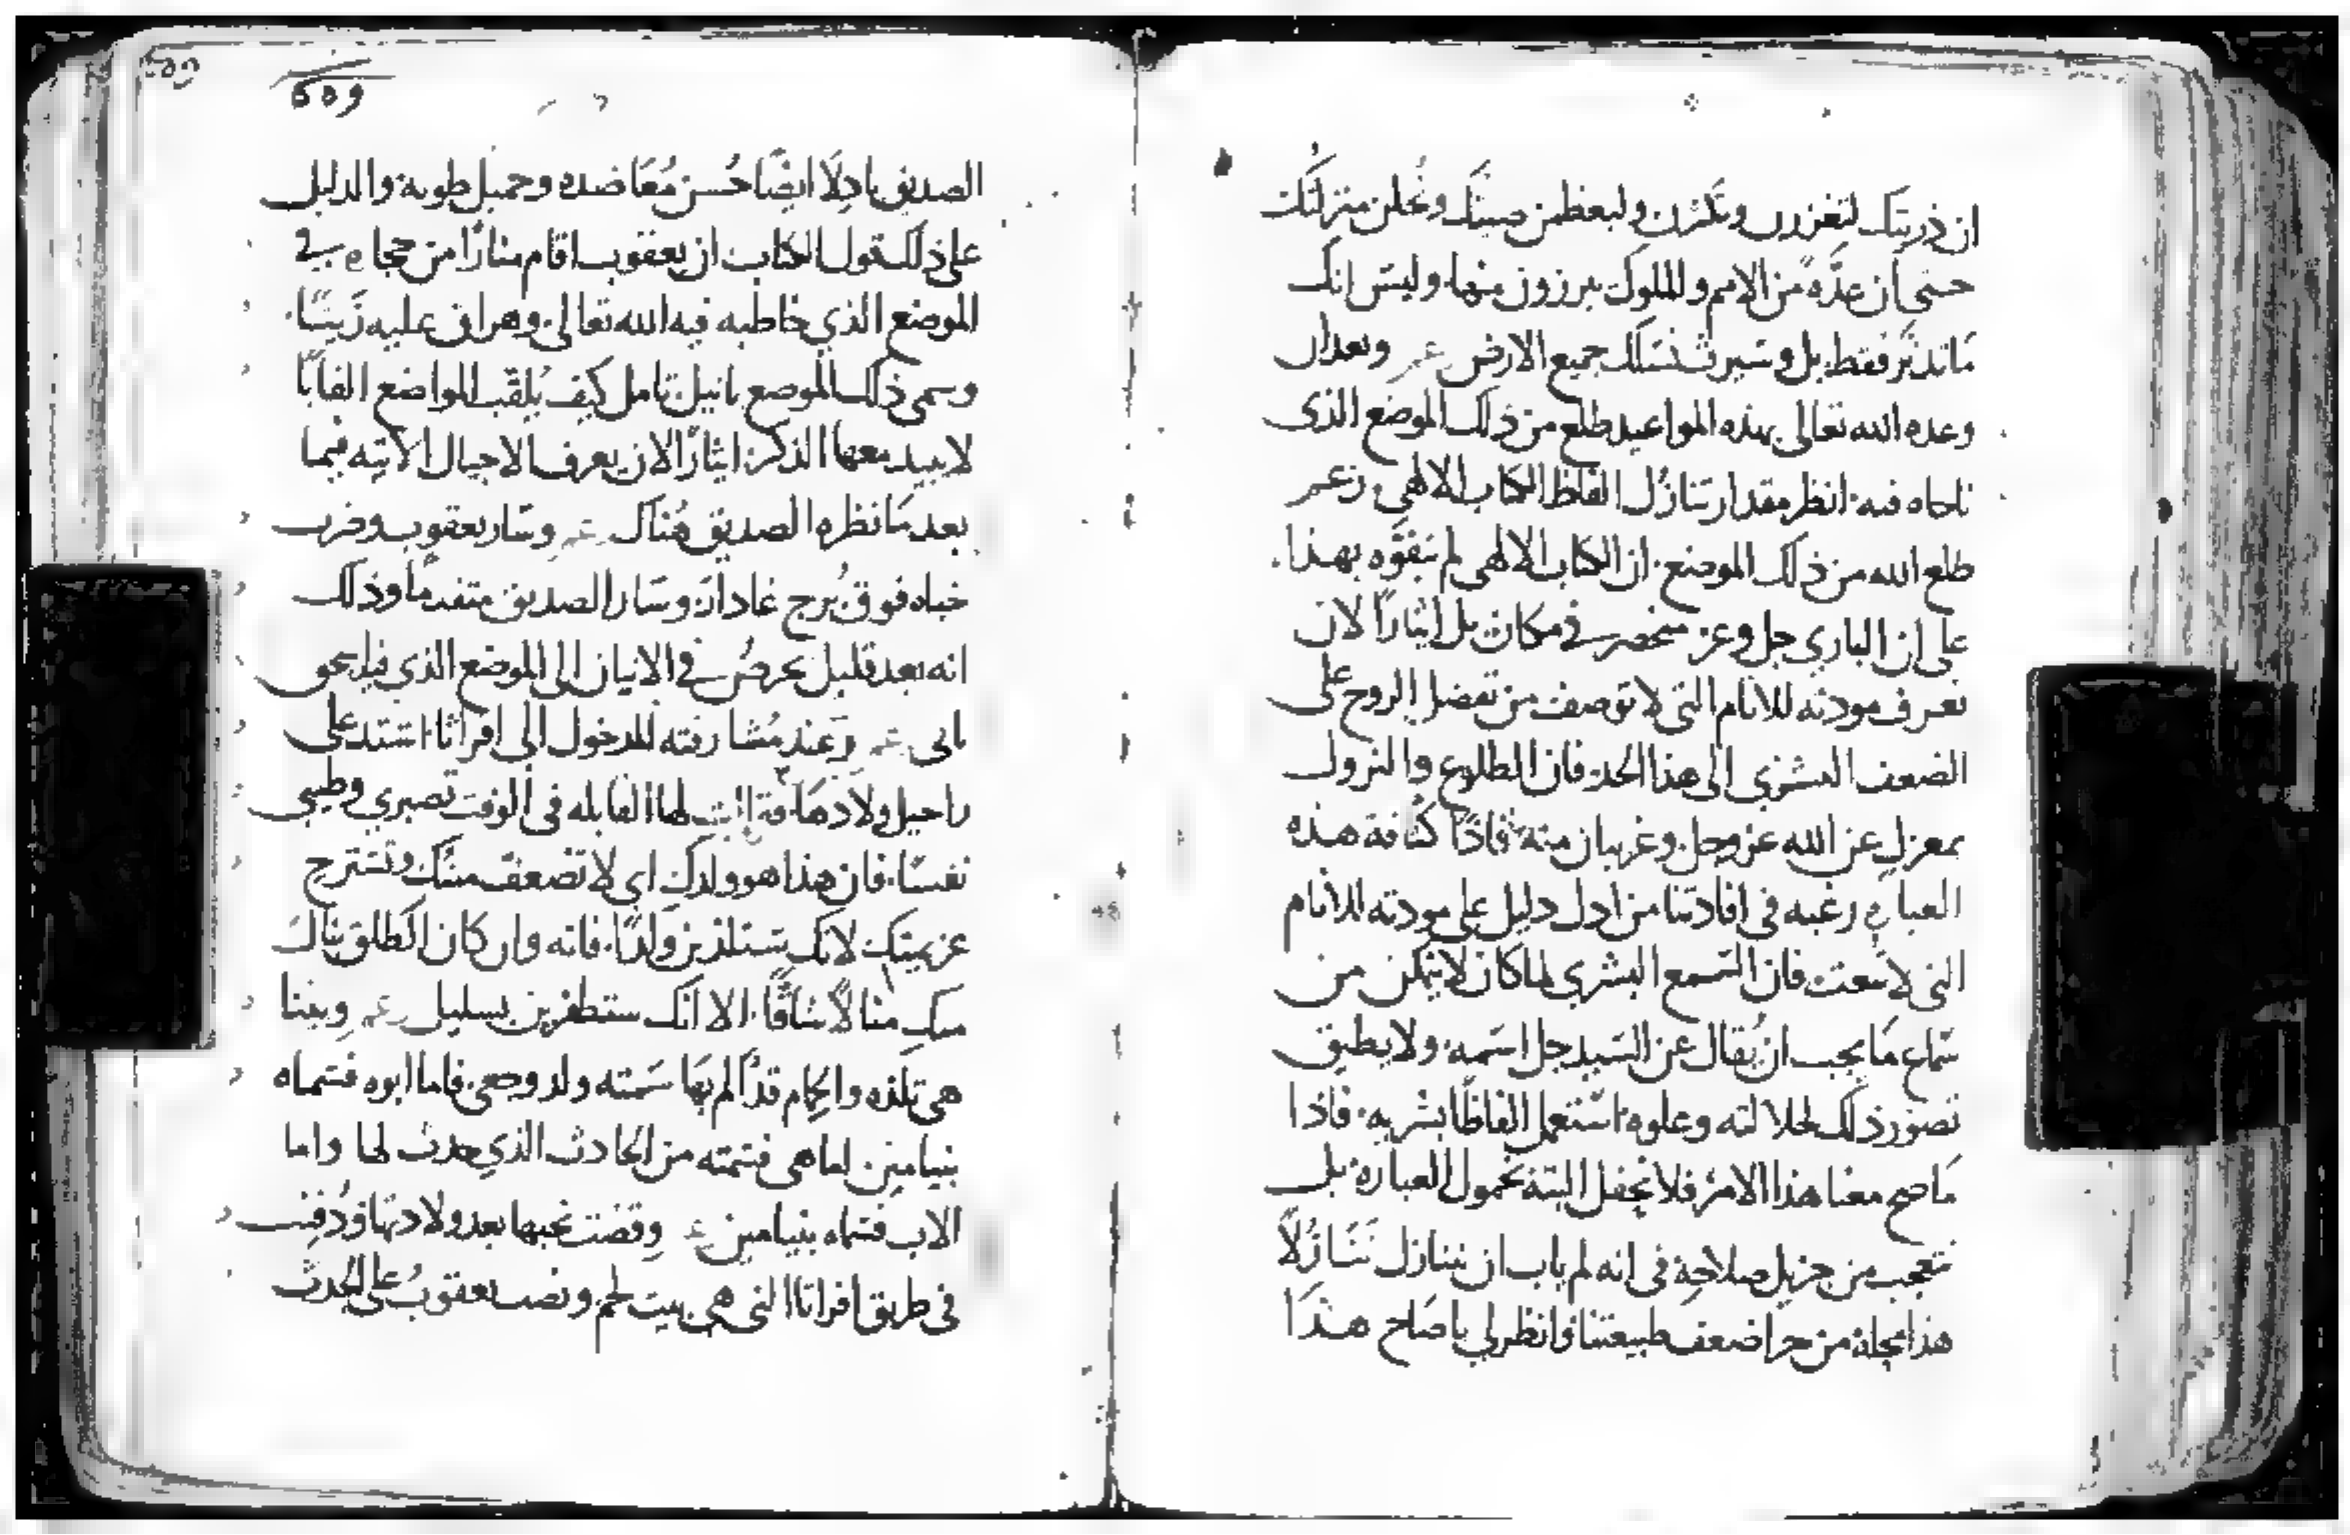 ان ذريتك لتغزرن وتكثرن وليعظمن صيتك وتحلن منزلتك
حتى ان عدّة من الامم والملوك يبرزون منها. وليس انك
ما تدثر فقط بل وسيرث نسلك جميع الارض وبعد ان
وعده الله تعالى بهذه المواعيد طلع من ذلك الموضع الذى
ناجاه فيه. انظر مقدار تنازُل الفاظ الكتاب الالهي. زعم
طلع الله من ذلك الموضع. ان الكتاب الالهي لم يتفوّه بهذا.
على ان الباري جل وعز منحصر في مكان بل ايثارًا لان
نعرف مودته للانام التي لا توصف من تفضل الروح على
الضعف البشري الى هذا الحد. فان الطلوع والنزول
بمعزل عن الله عز وجل وغريبان منه. فاذًا كثافة هذه
العبارة رغبه في افادتنا من ادل دليل على مودته للانام
التي لا تنعت. فان السمع البشري لما كان لا يتمكن من
سماع ما يجب ان يُقال عن السيد جل اسمه. ولا يطيق
تصور ذلك لجلالته وعلوه استعمل الفاظًا بشريه. فاذا
ما صح معنا هذا الامر فلا نحفل البتة بخمول العبارة. بل
نتعجب من جزيل صلاحه في انه لم ياب ان يتنازل تنَازُلًا
هذا مجله من جرا ضعف طبيعتنا وانظر لي يا صاح هذا
659
الصديق باذلًا ايضًا حُسن مُعَاضده وجميل طويه. والدليل
على ذلك قول الكتاب ان يعقوب اقام منارًا من حجاره في
الموضع الذي خاطبه فيه الله تعالى. وهراق عليه زيتًا.
وسمى ذلك الموضع باتيل. تامل كيف يُلقّب المواضع القابًا
لا يبيد معها الذكر. ايثارًا لان يعرف الاجيال الآتيه فيما
بعد ما نظره الصديق هُناك وسار يعقوب وضرب
خباه فوق بُرج غادار. وسار الصديق متقدمًا وذلك
انه بعد قليل يحرصُ في الاتيان الى الموضع الذي فيه يحق
ابى وعند مُشارفته للدخول الى افراثا اشتد على
راحيل ولادهَا. فقالت لها القابله في الوقت تصبري وطيبي
نفسًا. فان هذا هو ولدكِ اي لا تضعف منتك وتسترخ
عزيمتك لانك ستلذين ولدًا. فانه وان كان الطلق ينال
منكِ منالًا شاقًا. الا انك ستظفرين بسليل وبينا
هي تلذه والحِام قد الم بها سَمته ولد وجعي. فاما ابوه فسماه
بنيامين. اما هي فسمته من الحادث الذي حدث لها واما
الاب فسماه بنيامين وقضت نحبها بعد ولادتها ودُفِنت
في طريق افراثا التي هي بيت لحم ونصب يعقوبُ على الجدث